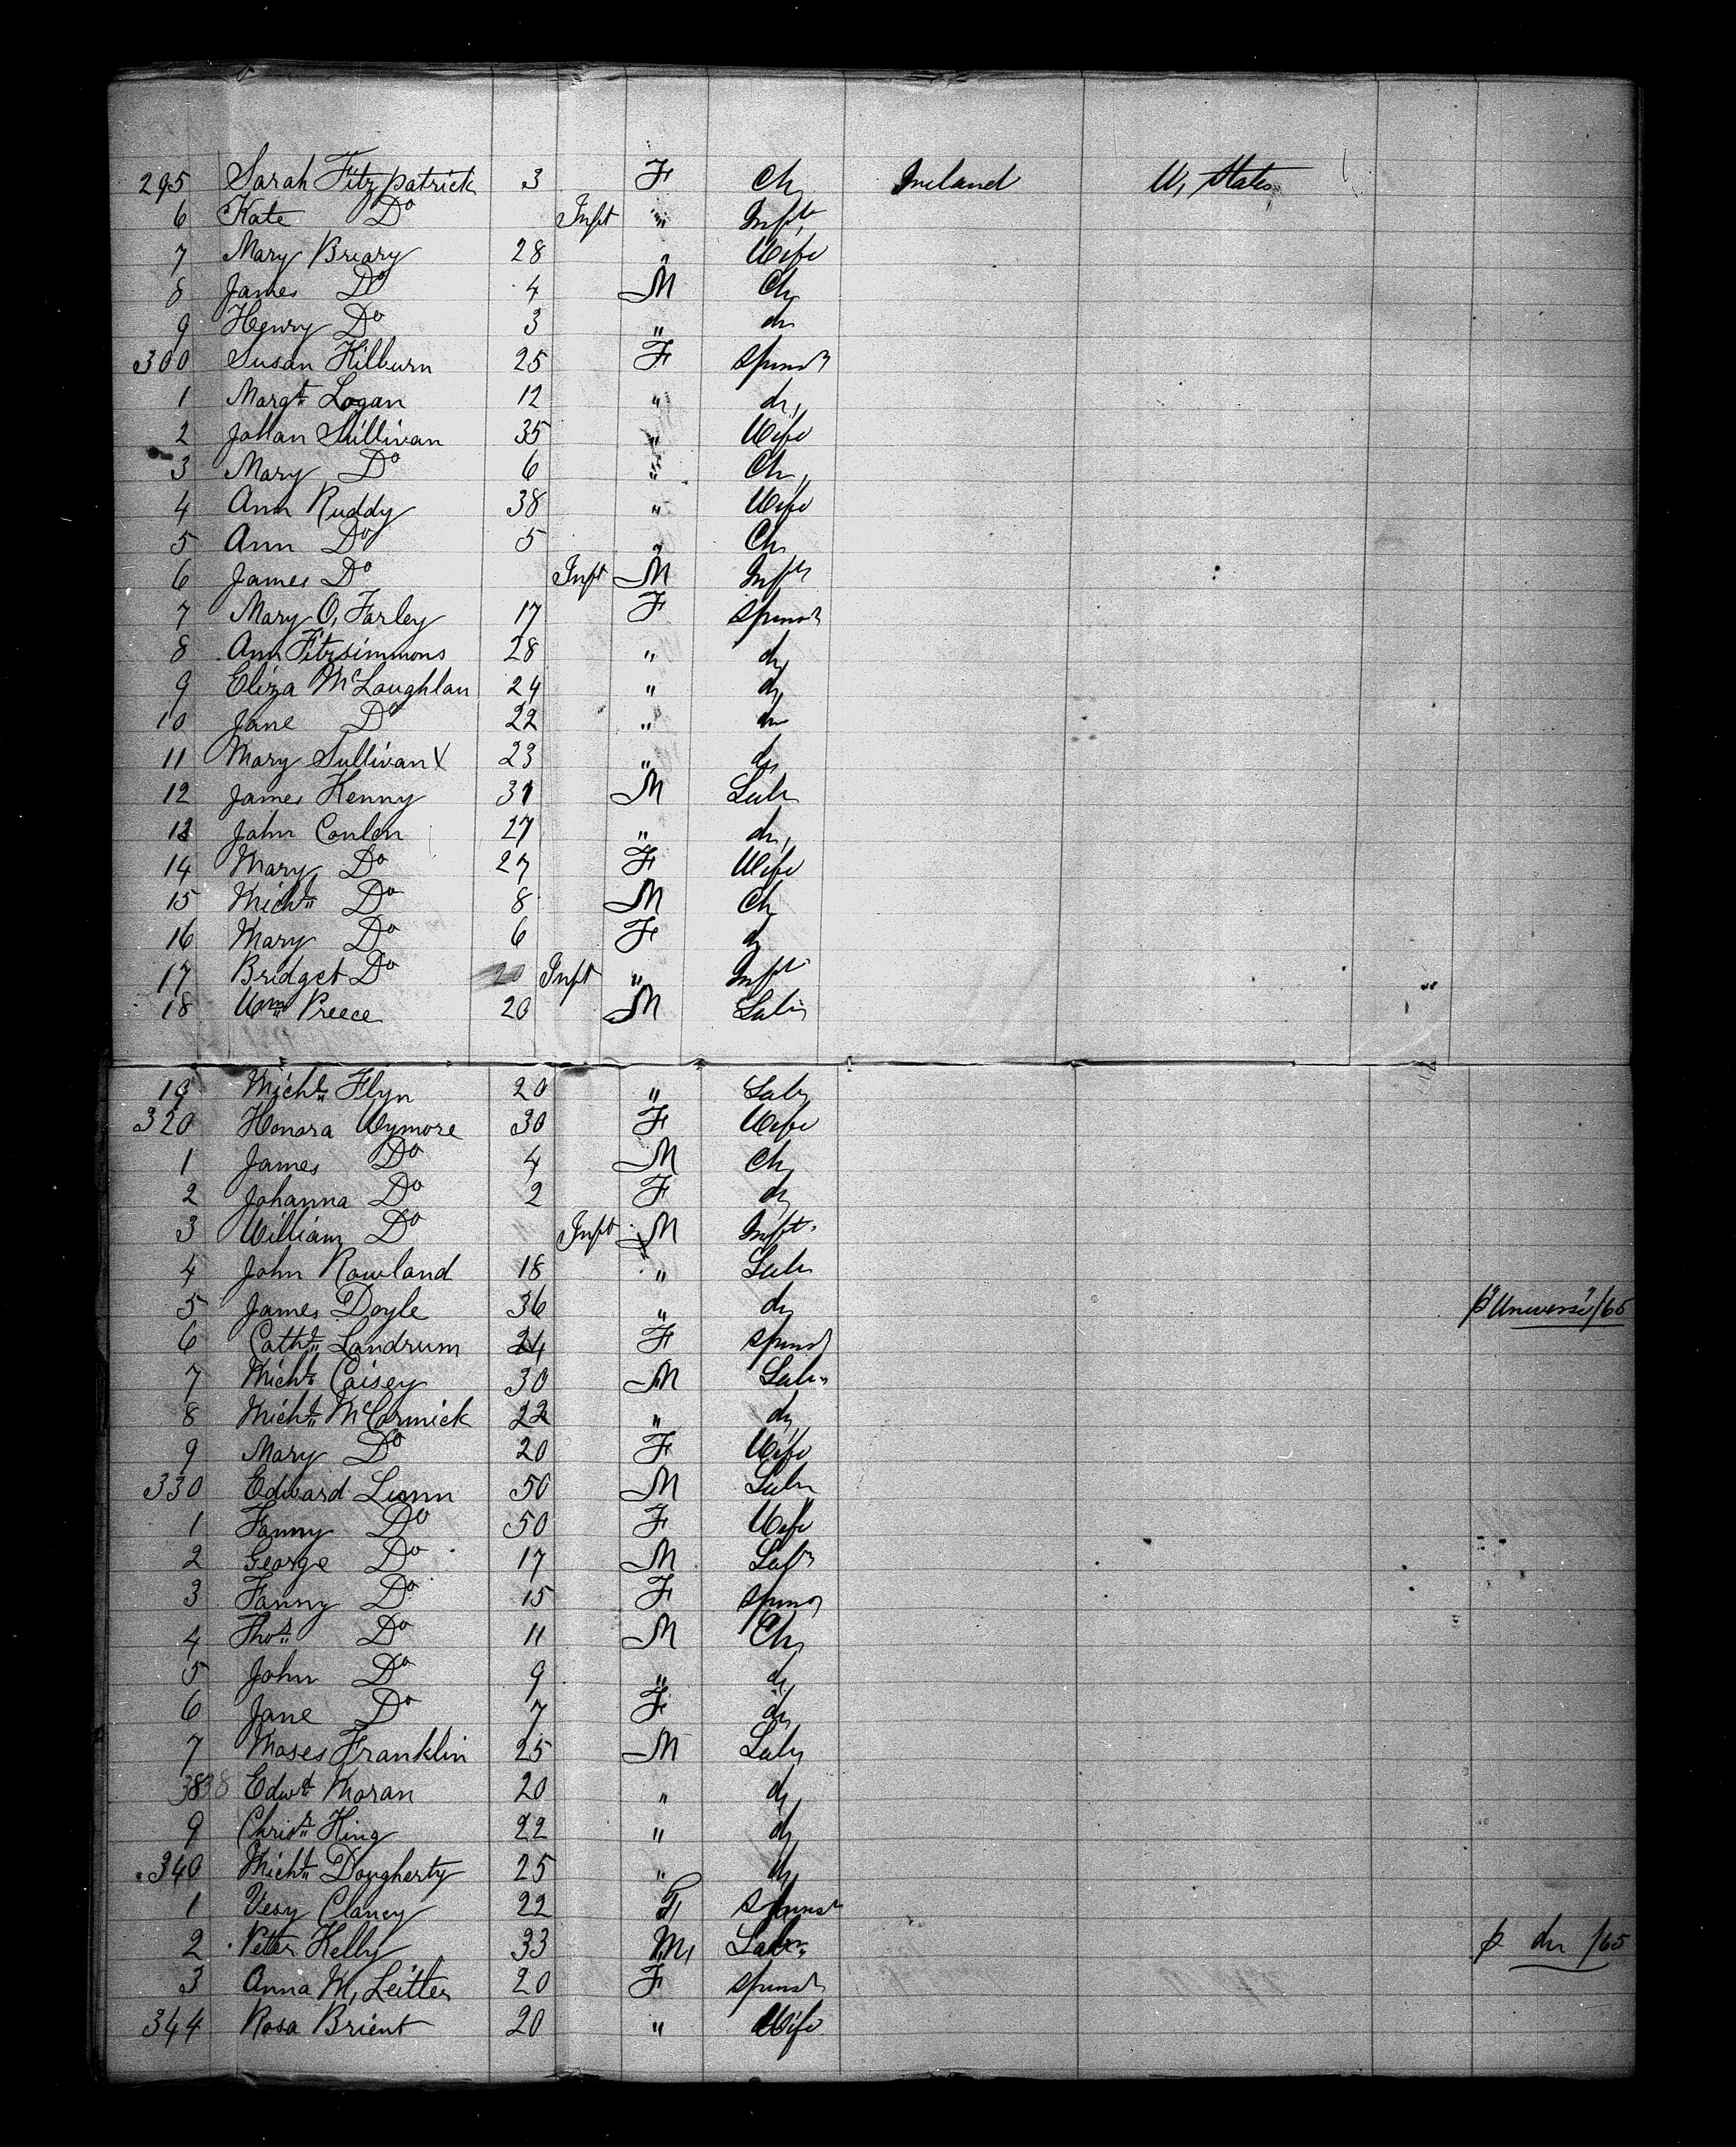 295 Sarah Fitzpatrick 3 F Ch, Ireland U, States
6 Kate Do Inft " Inft,
7 Mary Briary 28 " Wife
8 James Do 4 M Ch,
9 Henry Do 3 " do
300 Susan Kilburn 25 F Spinstr
1 Margt Logan 12 " do,
2 Johan Sullivan 35 " Wife
3 Mary Do 6 " Ch,
4 Ann Ruddy 38 " Wife
5 Ann Do 5 " Ch,
6 James Do Inft M Inft
7 Mary O, Farley 17 F Spinstr
8 Ann Fitzsimmons 28 " do,
9 Eliza McLoughlan 24 " do,
10 Jane Do 22 " do
11 Mary Sullivan X 23 " do,
12 James Kenny 31 M Labr
13 John Conlon 27 " do,
14 Mary Do 27 F Wife
15 Michl Do 8 M Ch,
16 Mary Do 6 F do,
17 Bridget Do Inft " Inft
18 Wm Preece 20 M Labr
19 Michl Flyn 20 " Labr
320 Honora Wymore 30 F Wife
1 James Do 4 M Ch,
2 Johanna Do 2 F do,
3 William Do Inft M Inft
4 John Rowland 18 " Labr
5 James Doyle 36 " do, p "Universe"/65
6 Cathe Landrum 24 F Spinstr
7 Michl Caisey 30 M Labr
8 Michl McCormick 22 " do,
9 Mary Do 20 F Wife
330 Edward Lunn 50 M Labr
1 Fanny Do 50 F Wife
2 George Do 17 M Labr
3 Fanny Do 15 F Spinstr
4 Thos Do 11 M Ch,
5 John Do 9 " do,
6 Jane Do 7 F do,
7 Moses Franklin 25 M Labr
338 Edwd Moran 20 " do,
9 Christr King 22 " do,
340 Michl Dougherty 25 " do,
1 Vesy Clancy 22 F, Spinstr
2 Peter Kelly 33 M, Labr p do /65
3 Anna M, Leitter 20 F Spinstr
344 Rosa Brient 20 " Wife